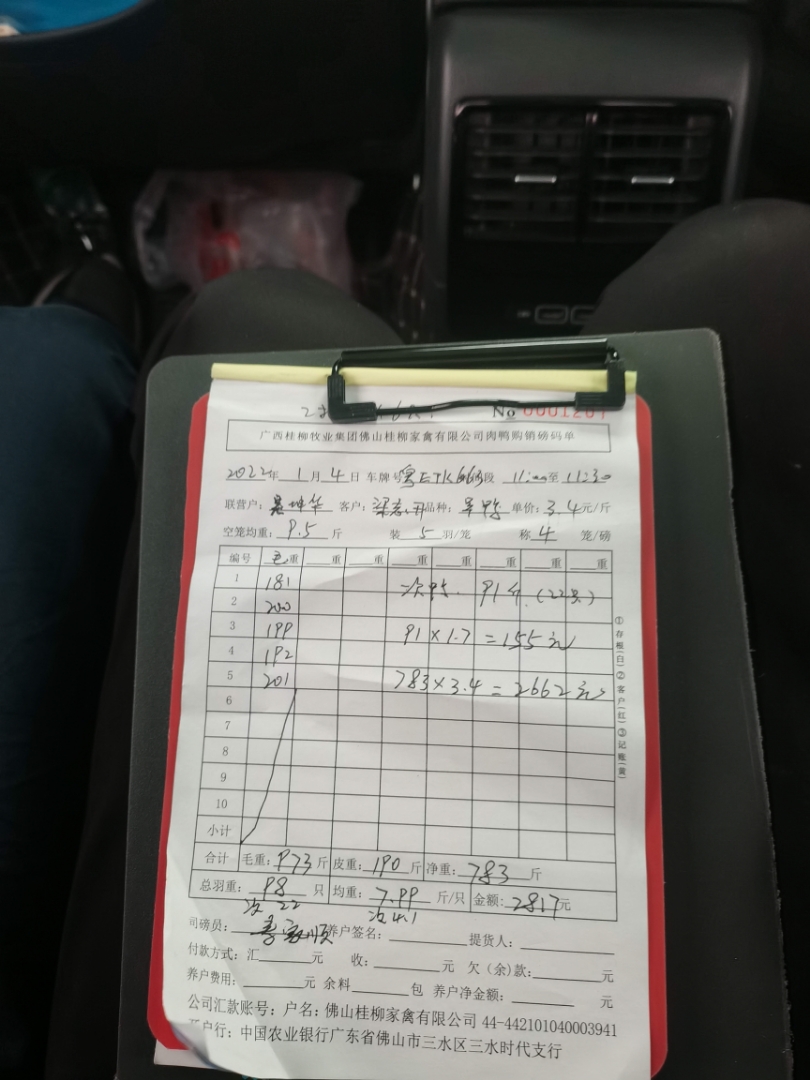 No 0001201
广西桂柳牧业集团佛山桂柳家禽有限公司肉鸭购销磅码单
2022年 1 月 4 日 车牌号 粤ETK663 段 11:00 至 11:30
联营户: 客户: 品种: 单价: 3.4 元/斤
空笼均重: 9.5 斤 装 5 羽/笼 称 4 笼/磅
编号 毛重 重 重 重 重 重 重 重
1 181 次鸭. 91斤.(22只)
2 200
3 199 91×1.7=155元
4 192
5 201 783×3.4=2662元
6
7
8
9
10
小计
合计 毛重: 973 斤 皮重: 190 斤 净重: 783 斤
总羽重: 98 只 均重: 7.99 斤/只 金额: 2817元
次 22 次4.1
司磅员: 李家顺 养户签名: 提货人:
付款方式: 汇 元 收: 元 欠(余)款: 元
养户费用: 元 余料 包 养户净金额: 元
公司汇款账号: 户名: 佛山桂柳家禽有限公司 44-442101040003941
户行: 中国农业银行广东省佛山市三水区三水时代支行
①存根(白)②客户(红)③记账(黄)